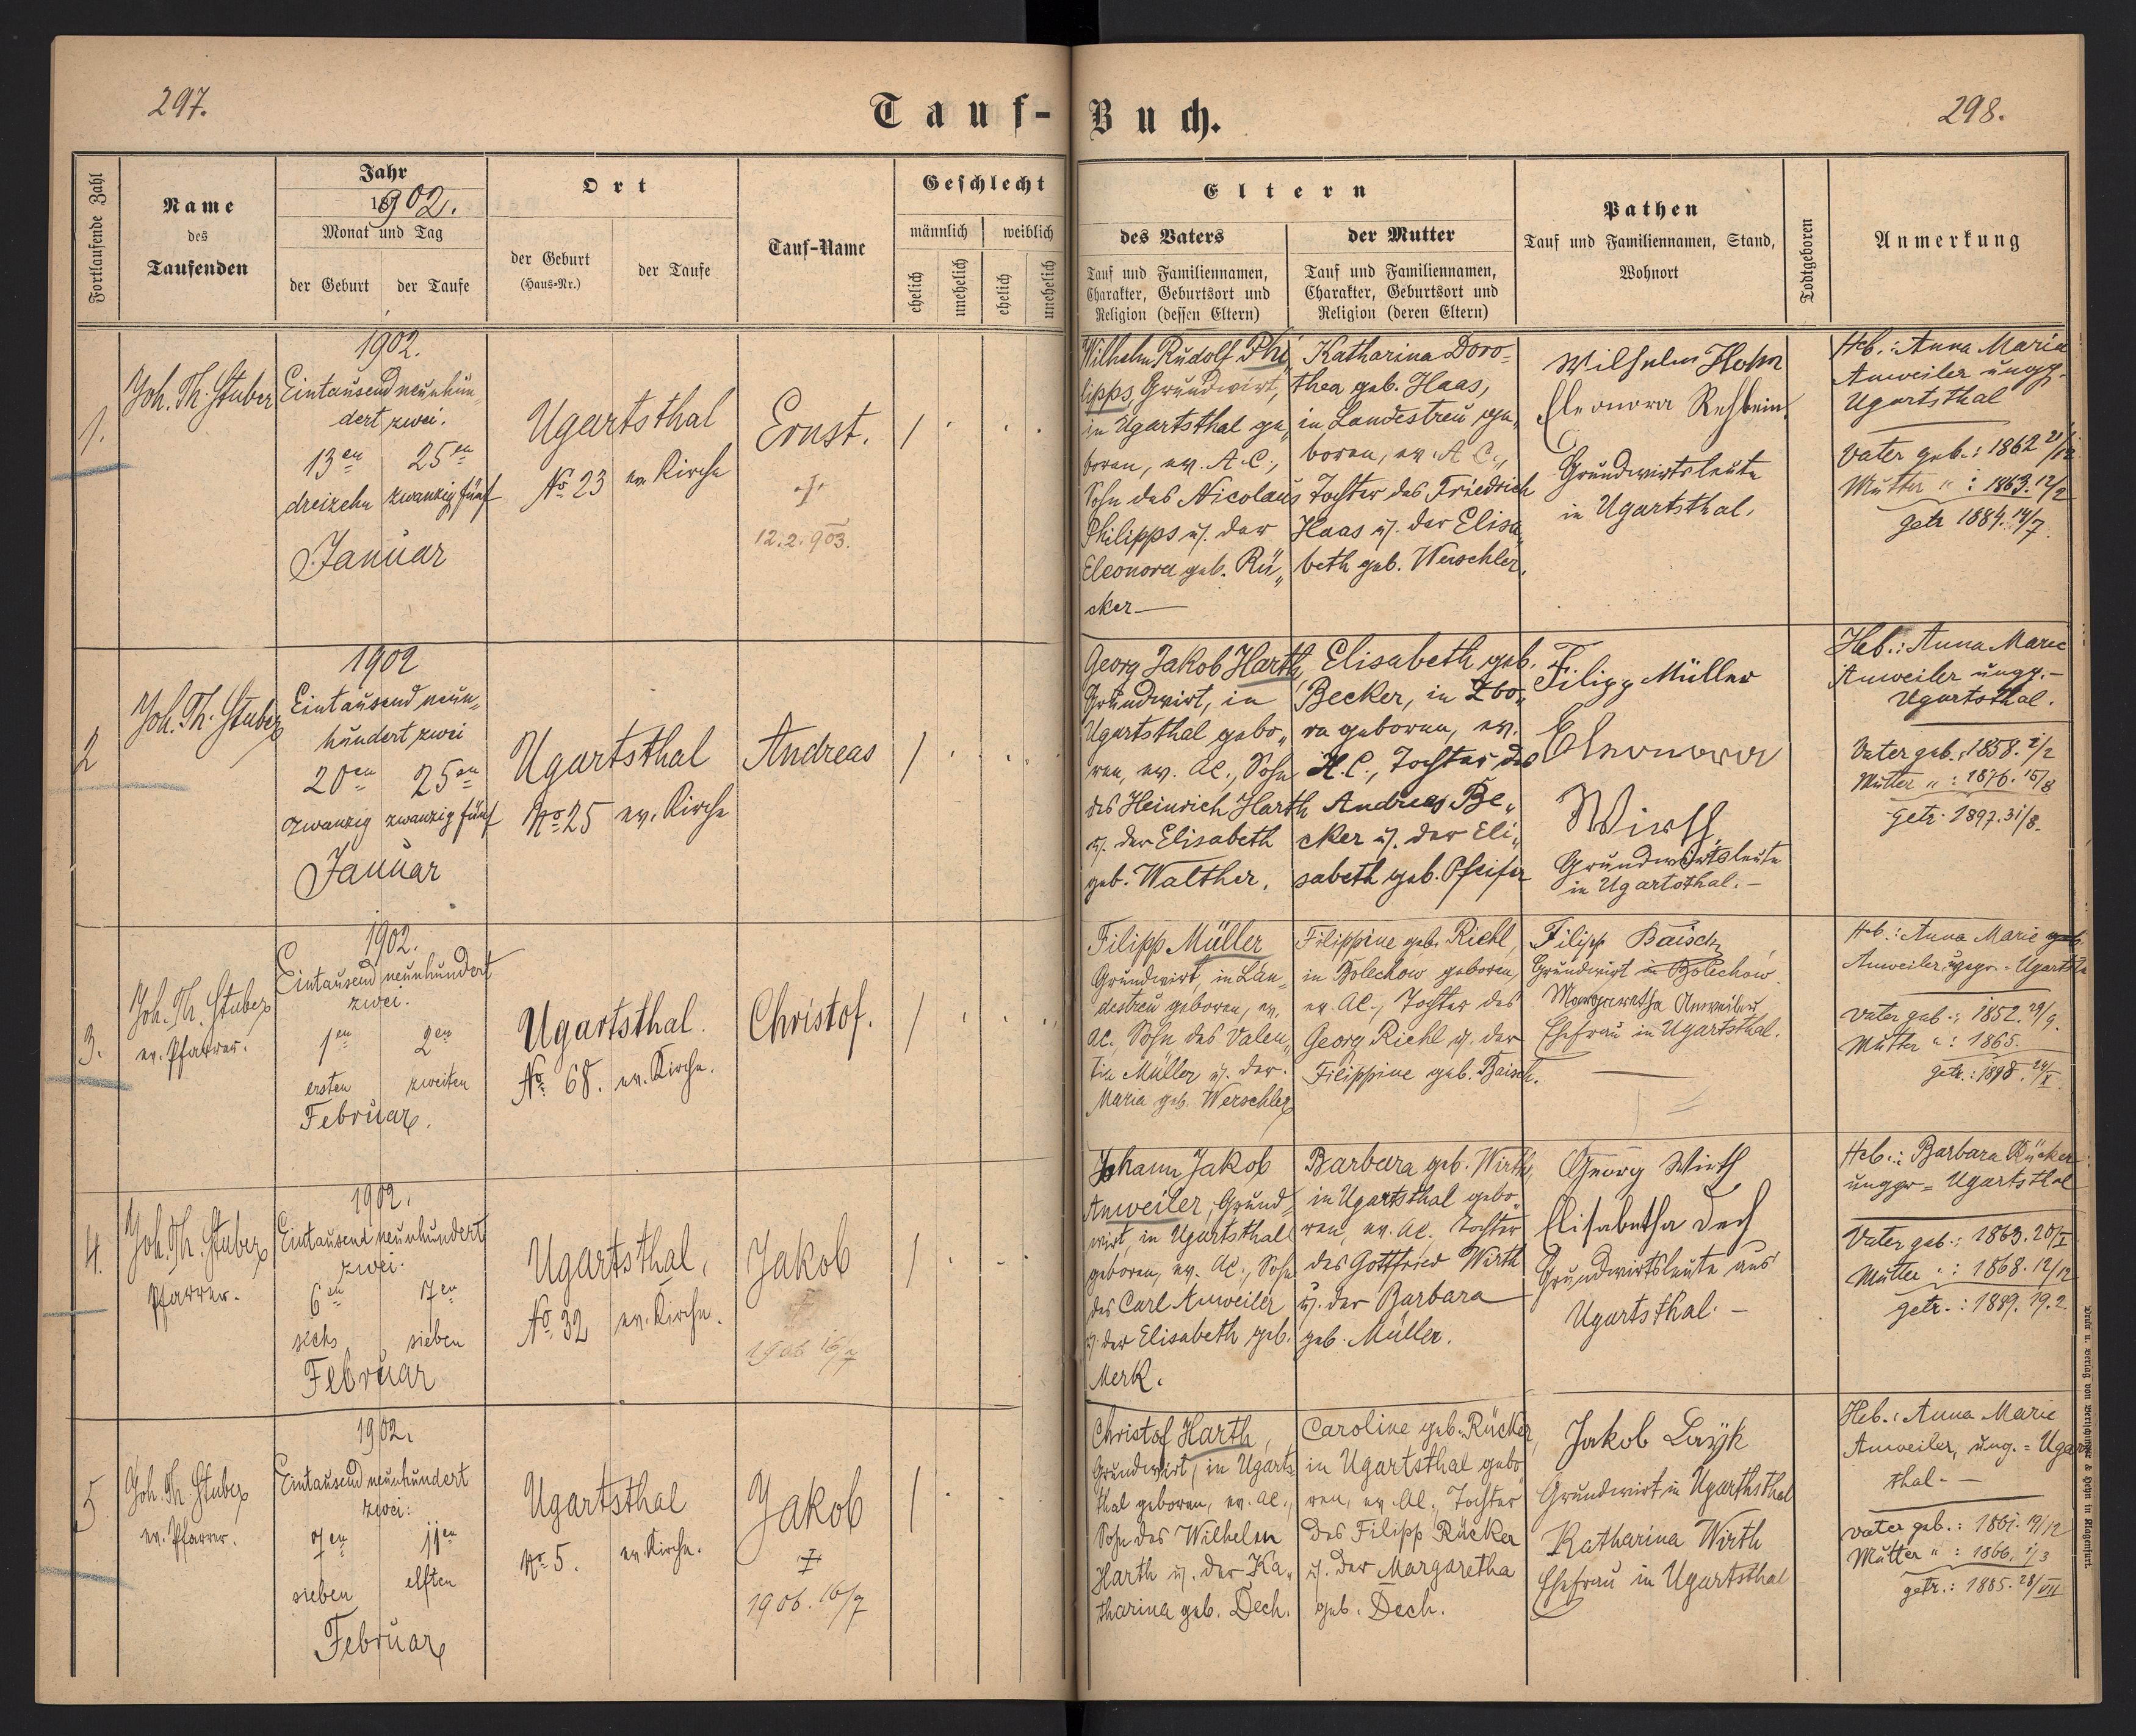 297.
Tauf-Buch.
298.
Fortlaufende Zahl
Name
des
Taufenden
Jahr
1902.
Monat und Tag
der Geburt
der Taufe
Ort
der Geburt
(Haus-Nr.)
der Taufe
Tauf-Name
Geschlecht
männlich
weiblich
ehelich
unehelich
ehelich
unehelich
Eltern
des Vaters
Tauf und Familiennamen,
Charakter, Geburtsort und
Religion (dessen Eltern)
der Mutter
Tauf und Familiennamen,
Charakter, Geburtsort und
Religion (deren Eltern)
Pathen
Tauf und Familiennamen, Stand,
Wohnort
Todtgeboren
Anmerkung
1.
Joh. Th. Stuber
1902.
Eintausend neunhun„
dert zwei.
13en
25en
dreizehn
zwanzig fünf
Januar
Ugartsthal
No 23
ev. Kirche
Ernst.
12.2.903.
Wilhelm Rudolf Phi„
lipps, Grundwirt,
in Ugartsthal ge„
boren, ev. A.C.,
Sohn des Nicolaus
Philipps u. der
Eleonora geb. Rü„
cker—
Katharina Doro-
thea geb. Haas,
in Landestreu ge„
boren, ev. A.C.,
Tochter des Friedrich
Haas u. der Elisa„
beth geb. Werschler.
Wilhelm Hohn
Eleonora Rehbein.
Grundwirtsleute
in Ugartsthal.
Heb.: Anna Maria
Anweiler ungp.
Ugartsthal
Vater geb.: 1862 21/12
Mutter „ : 1863. 12/2
Getr 1884. 14/7.
2
Joh. Th. Stuber
1902
Eintausend neun„
hundert zwei
20en
25en
zwanzig
zwanzig fünf
Januar
Ugartsthal
No 25
ev. Kirche
Andreas
Georg Jakob Harth,
Grundwirt, in
Ugartsthal gebo„
ren, ev. AC., Sohn
des Heinrich Harth
u. der Elisabeth
geb. Walther.
Elisabeth geb.
Becker, in Zbo„
ra geboren, ev.
H.C., Tochter des
Andreas Be„
cker u. der Eli„
sabeth geb. Pfeifer
Filipp Müller
Eleonora
Wirth,
Grundwirtsleute
in Ugartsthal.—
Heb.: Anna Marie
Anweiler ungp.—
Ugartsthal.
Vater geb.: 1858. 2/2
Mutter „ : 1876. 15/8
getr. 1897. 31/8.
3.
Joh. Th. Stuber
ev. Pfarrer.
1902.
Eintausend neunhundert
zwei.
1en
2en
ersten
zweiten
Februar.
Ugartsthal.
No 68.
ev. Kirche.
Christof.
Filipp Müller
Grundwirt, in Lan„
destreu geboren, ev.
AC., Sohn des Valen„
tin Müller u. der
Maria geb. Werschler
Filippine geb. Riehl,
in Bolechow geboren,
ev. AC., Tochter des
Georg Riehl u. der
Filippine geb. Baisch.
Filipp Baisch,
Grundwirt in Bolechow
Margaretha Anweiler,
Ehefrau in Ugartsthal.
Heb.: Anna Marie geb.
Anweiler,
Vater geb.: 1852. 29/9.
Mutter „ : 1865.
getr.: 1898. 24/X.
4.
Joh. Th. Stuber
Pfarrer.
1902.
Eintausend neunhundert
zwei.
6en
17en
sechs
sieben
Februar
Ugartsthal,
No 32
ev. Kirche.
Jakob
1906 16/7
Johann Jakob
Anweiler, Grund„
wirt, in Ugartsthal
geboren, ev. AC., Sohn
des Carl Anweiler
u. der Elisabeth geb.
Merk.
Barbara geb. Wirth,
in Ugartsthal gebo„
ren, ev. AC. Tochter
des Gottfried Wirth
u. der Barbara
geb. Müller.
Georg Wirth
Elisabetha Dech
Grundwirtsleute aus
Ugartsthal.—
Heb.: Barbara Rücker
Ugartsthal
Vater geb.: 1863. 20/I
Mutter „ : 1868. 12/12
getr.: 1889. 19.2.
5
Joh. Th. Stuber
ev. Pfarrer.
1902.
Eintausend neunhundert
zwei:
7en
11en
sieben
elften
Februar
Ugartsthal
No 5.
ev. Kirche.
Jakob
1906. 16/7
Christof Harth,
Grundwirt, in Ugarts„
thal geboren, ev. AC.,
Sohn des Wilhelm
Harth u. der Ka„
tharina geb. Dech.
Caroline geb. Rücker,
in Ugartsthal gebo„
ren, ev. AC., Tochter
des Filipp Rücker
u. der Margaretha
geb. Dech.
Jakob Layh
Grundwirt in Ugarthsthal
Katharina Wirth
Ehefrau in Ugartsthal
Heb.: Anna Marie
Anweiler, ung. = Ugarts
thal.—
Vater geb.: 1861. 19/12
Mutter „ : 1866. 1/3
getr.: 1885. 28/VII
Druck u. Verlag von Bertschinger & Heyn in Klagenfurt.